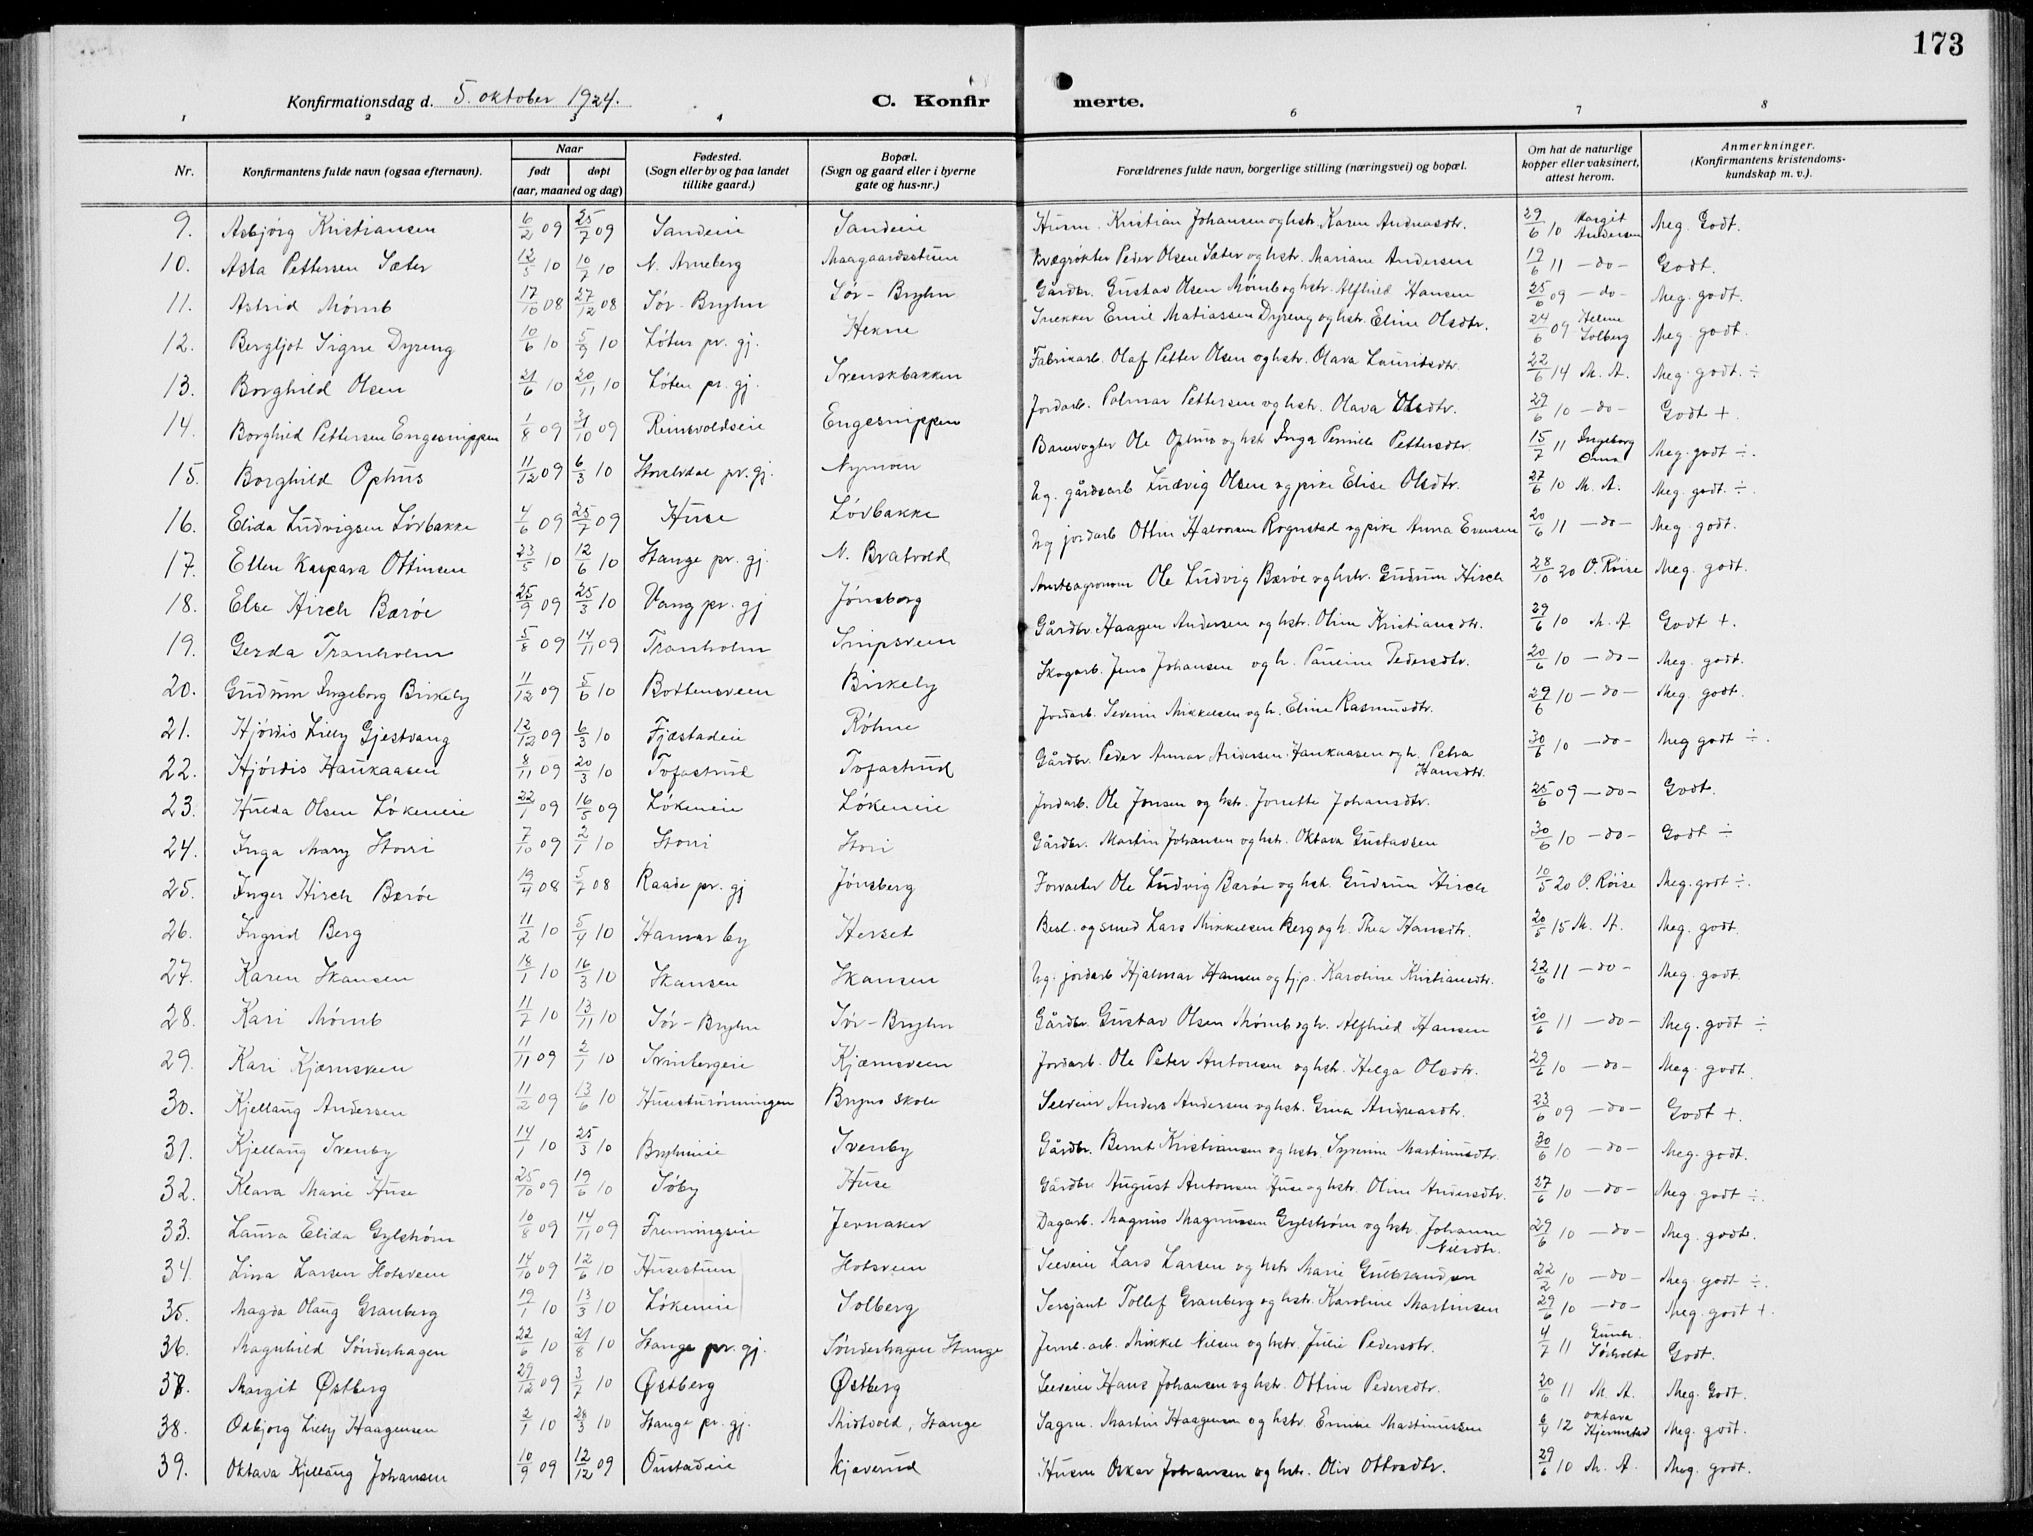 173
Konfirmationsdag d. 5. oktober 1924. C. Konfirmerte.
1 2 3 4 6 7 8
Nr. Konfirmantens fulde navn (ogsaa efternavn). Naar født døpt (aar, maaned og dag) Fødested. (Sogn eller by og paa landet tillike gaard.) Bopæl. (Sogn og gaard eller i byerne gate og hus-nr.) Forældrenes fulde navn, borgerlige stilling (næringsvei) og bopæl. Om hat de naturlige kopper eller vaksinert, attest herom. Anmerkninger. (Konfirmantens kristendoms-kundskap m. v.).
9. Asbjörg Kristiansen 6/2 09 25/7 09 Sandeie Sandeie Husm. Kristian Johansen og hstr. Karen Andreasdtr. 29/6 10 Margit Andersen Meg. Godt.
10. Asta Pettersen Sæter 12/5 10 10/7 10 N. Arneberg Maagaardsstuen Kvægrøkter Peder Olsen Sæter og hstr. Mariane Andersen 19/6 11 - do - Godt.
11. Astrid Mømb 17/10 08 27/12 08 Sør-Bryhn Sør-Bryhn Gårdbr. Gustav Olsen Mømb og hstr. Alfhild Hansen 25/6 09 - do - Meg. godt.
12. Bergljot Signe Dyreng 10/6 10 5/9 10 Løten pr. gj. Hekne Snekker Emil Matiassen Dyreng og hstr. Eline Olsdtr. 24/6 09 Helene Solberg Meg. godt.
13. Borghild Olsen 21/6 10 20/11 10 Løten pr. gj. Svenskbakken Fabrikarb. Olaf Petter Olsen og hstr. Olava Lauritsdtr. 22/6 14 M. A. Meg. godt. ÷
14. Borghild Pettersen Engesnippen 1/8 09 31/10 09 Reinsvoldseie Engesnippen Jordarb. Palmar Pettersen og hstr. Olava Olsdtr. 29/6 10 - do - Godt +.
15. Borghild Ophus 11/12 09 6/3 10 pr. gj. Nymoen Banevogter Ole Ophus og hstr Inga Pernille Pettersdtr. 15/7 11 Ingeborg Meg. godt ÷.
16. Elida Ludvigsen Lövbakke 4/6 09 25/7 09 Huse Lövbakke Ug. gårdsarb Ludvig Olsen og pike Elise Olsdtr. 27/6 10 M. A. Meg. godt. ÷.
17. Ellen Kaspara Ottinsen 23/5 10 12/6 10 Stange pr. gj. N. Bratvold Ug jordarb Ottin Halvorsen Rognstad og pike Anna Evensen 20/6 11 - do - Meg. godt.
18. Else Hirsch Barøe 25/9 09 25/3 10 Vang pr. gj Jönsberg Amtsagronom Ole Ludvig Barøe og hstr. Gudrun Hirsch 28/10 20 O. Röise Meg. godt.
19. Gerda Tranholm 5/8 09 14/11 09 Tranholm Snipsveen Gårdbr. Haagen Andersen og hstr. Oline Kristiansdtr. 29/6 10 M. A Godt +.
20. Gudrun Ingeborg Birkely 11/12 09 5/6 10 Bottensveen Birkely Skogarb. Jens Johansen og h. Pauline Pedersdtr. 20/6 10 - do - Meg. godt.
21. Hjördis Lilly Gjestvang 12/12 09 6/3 10 Fjæstadeie Röhne Jordarb. Severin Mikkelsen og h. Eline Rasmusdtr. 29/6 10 - do - Meg. godt.
22. Hjördis Haukaasen 8/11 09 20/3 10 Tofastrud Tofastrud Gårdbr. Peder Annar Andersen Haukaasen og h. Petra Hansdtr. 30/6 10 - do - Meg godt ÷.
23. Hulda Olsen Lökeneie 22/1 09 16/5 09 Lökeneie Lökeneie Jordarb. Ole Jonsen og hstr. Jonette Johansdtr. 25/6 09 - do - Godt.
24. Inga Mary Storri 7/10 09 2/1 10 Storri Stori Gårdbr. Martin Johansen og hstr. Oktava Gustavsen 30/6 10 - do - Godt ÷
25. Inger Hirsch Barøe 19/4 08 5/7 08 Raade pr. gj Jönsberg Forvalter Ole Ludvig Barøe og hstr. Gudrun Hirsch 10/5 20 O. Röise Meg. godt ÷.
26. Ingrid Berg 11/2 10 5/4 10 Hamar by Herset Best. og smed Lars Mikkelsen Berg og h. Thea Hansdtr. 20/5 15 M. A. Meg. godt.
27. Karen Skansen 18/1 10 16/3 10 Skansen Skansen Ug. jordarb Hjalmar Hansen og tjp. Karoline Kristiansdtr. 22/6 11 - do - Meg. godt
28. Kari Mömb 11/7 10 13/11 10 Sör-Bryhn Sör-Bryhn Gårdbr. Gustav Olsen Mömb og h. Alfhild Hansen 20/6 11 - do - Meg. godt ÷
29. Kari Kjærnsveen 11/11 09 2/1 10 Svinbergeie Kjærnsveen Jordarb. Ole Peter Antonsen og hstr. Helga Olsdtr. 29/6 10 - do - Meg. godt.
30. Kjellaug Andersen 11/2 09 13/6 10 Husesturönningen Bryns skole Selveier Anders Andersen og hstr. Gina Andreasdtr. 23/6 09 - do - Godt +.
31. Kjellaug Svenby 14/1 10 25/3 10 Bryhneie Svenby Gårdbr. Bernt Kristiansen og hstr. Syverine Martinusdtr. 30/6 10 - do - Meg. godt.
32. Klara Marie Huse 25/10 09 19/6 10 Söby Huse Gårdbr August Antonsen Huse og hstr. Oline Andersdtr. 27/6 10 - do - Meg. godt ÷.
33. Laura Elida Gylström 10/8 09 14/11 09 Frenningseie Jernaker Dagarb. Magnus Magnussen Gylström og hstr. Johanne Nilsdtr. 29/6 10 - do - Meg. godt.
34. Lina Larsen Hotsveen 14/10 09 12/6 10 Husestuen Hotsveen Selveier Lars Larsen og hstr Marie Gulbrandsen 22/2 10 - do - Meg. godt ÷.
35. Magda Olaug Granberg 19/1 10 13/3 10 Lökeneie Solberg Sersjant Tollef Granberg og hstr. Karoline Martinsen 29/6 10 - do - Meg. godt +.
36. Magnhild Sönderhagen 22/6 10 21/8 10 Stange pr. gj. Sönderhagen Stange Jernb. arb. Mikkel Nilsen og hstr. Julie Pedersdtr. 4/7 11 Gunh. Sörholte Godt.
37. Margit Østberg 29/12 09 3/7 10 Østberg Østberg Selveier Hans Johansen og hstr. Ottine Pedersdtr. 20/6 11 M. A. Meg. Godt.
38. Osbjorg Lilly Haagensen 2/1 10 28/3 10 Stange pr. gj. Midtvold, Stange Sagm. Martin Haagensen og hstr. Emilie Martinussen 6/4 12 Oktava Hjernstad Meg. godt.
39. Oktava Kjellaug Johansen 10/9 09 12/12 09 Oustadeie Kjaverud Husm Oskar Johansen og hstr. Oliv Ottosdtr. 29/6 10 M. A. Meg. godt.